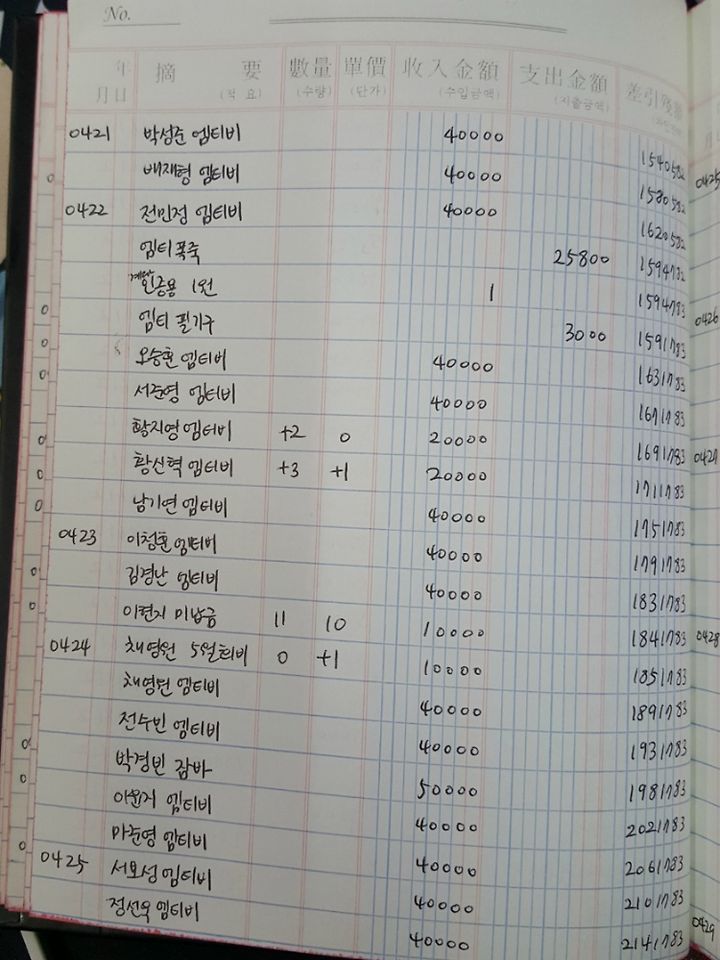 No.
年 月日 摘要 (적요) 數量 (수량) 單價 (단가) 收入金額 (수입금액) 支出金額 (지출금액) 差引殘額
0421 박성준 엠티비 40000 1540582
배재형 엠티비 40000 1580582
0422 전민정 엠티비 40000 1620582
엠티 폭죽 25800 1594782
인증용 1원 1 1594783
엠티 필기구 3000 1591783
오승환 엠티비 40000 1631783
서준영 엠티비 40000 1671783
황지영 엠티비 +2 0 20000 1691783
황신혁 엠티비 +3 +1 20000 1711783
남기연 엠티비 40000 1751783
0423 이청훈 엠티비 40000 1791783
김경난 엠티비 40000 1831783
이현지 미납금 11 10 10000 1841783
0424 채영원 5월회비 0 +1 10000 1851783
채영원 엠티비 40000 1891783
전수빈 엠티비 40000 1931783
박경빈 잠바 50000 1981783
이윤지 엠티비 40000 2021783
마준영 엠티비 40000 2061783
0425 서보성 엠티비 40000 2101783
정선욱 엠티비 40000 2141783
0425
0426
0427
0428
0429